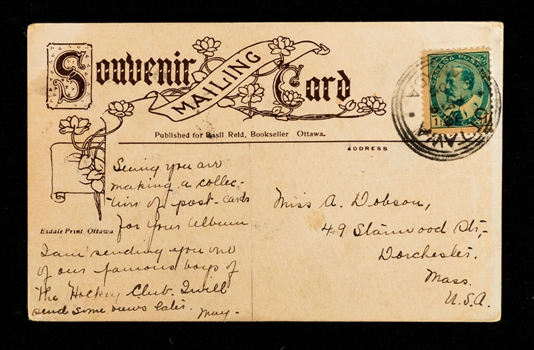 Souvenir
MAILING
Card
CANADA POSTAGE
OTTAWA
CANADA
Published for Basil Reid, Bookseller Ottawa.
ADDRESS
Esdale Print Ottawa
Seeing you are
making a collec-
tion of post-cards
for your album
I am sending you one
of our famous boys of
the Hockey Club. I will
send some views later.
May-
Miss A. Dobson,
49 Stanwood St,-
Dorchester,
Mass.
U.S.A.